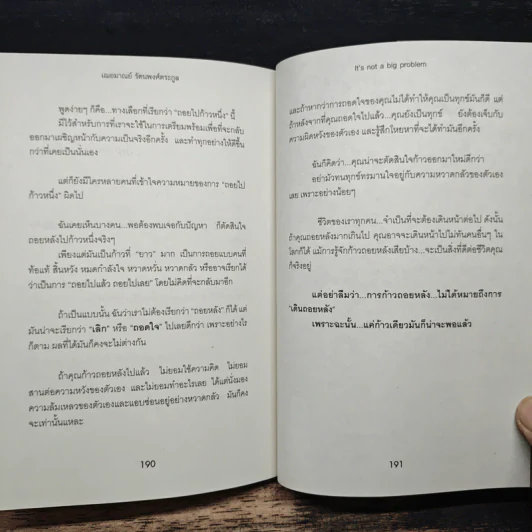 เฌอมาณย์ รัตนพงศ์ตระกูล
พูดง่ายๆ ก็คือ...ทางเลือกที่เรียกว่า “ถอยไปก้าวหนึ่ง” นี้
มีไว้สำหรับการที่เราจะใช้ในการเตรียมพร้อมเพื่อที่จะกลับ
ออกมาเผชิญหน้ากับความเป็นจริงอีกครั้ง และทำทุกอย่างให้ดีขึ้น
กว่าที่เคยเป็นนั่นเอง
แต่ก็ยังมีใครหลายคนที่เข้าใจความหมายของการ “ถอยไป
ก้าวหนึ่ง” ผิดไป
ฉันเคยเห็นบางคน...พอต้องพบเจอกับปัญหา ก็ตัดสินใจ
ถอยหลังไปก้าวหนึ่งจริงๆ
เพียงแต่มันเป็นก้าวที่ “ยาว” มาก เป็นการถอยแบบคนที่
ท้อแท้ สิ้นหวัง หมดกำลังใจ หวาดหวั่น หวาดกลัว หรืออาจเรียกได้
ว่าเป็นการ “ถอยไปแล้ว ถอยไปเลย” โดยไม่คิดที่จะกลับมาอีก
ถ้าเป็นแบบนั้น ฉันว่าเราไม่ต้องเรียกว่า “ถอยหลัง” ก็ได้ แต่
มันน่าจะเรียกว่า “เลิก” หรือ “ถอดใจ” ไปเลยดีกว่า เพราะอย่างไร
ก็ตาม ผลที่ได้มันก็คงจะไม่ต่างกัน
ถ้าคุณก้าวถอยหลังไปแล้ว ไม่ยอมใช้ความคิด ไม่ยอม
สานต่อความหวังของตัวเอง และไม่ยอมทำอะไรเลย ได้แต่นั่งมอง
ความล้มเหลวของตัวเองและแอบซ่อนอยู่อย่างหวาดกลัว มันก็คง
จะเท่านั้นแหละ
190
It's not a big problem
และถ้าหากว่าการถอดใจของคุณไม่ได้ทำให้คุณเป็นทุกข์มันก็ดี แต่
ถ้าหลังจากที่คุณถอดใจไปแล้ว...คุณยังเป็นทุกข์ ยังต้องเจ็บกับ
ความผิดหวังของตัวเอง และรู้สึกโหยหาที่จะได้ทำมันอีกครั้ง
ฉันก็คิดว่า...คุณน่าจะตัดสินใจก้าวออกมาใหม่ดีกว่า
อย่ามัวทนทุกข์ทรมานใจอยู่กับความหวาดกลัวของตัวเอง
เลย เพราะอย่างน้อยๆ
ชีวิตของเราทุกคน...จำเป็นที่จะต้องเดินหน้าต่อไป ดังนั้น
ถ้าคุณถอยหลังมากเกินไป คุณอาจจะเดินหน้าไปไม่ทันคนอื่นๆ ใน
โลกก็ได้ แม้การรู้จักก้าวถอยหลังเสียบ้าง...จะเป็นสิ่งที่ดีต่อชีวิตคุณ
ก็จริงอยู่
แต่อย่าลืมว่า...การก้าวถอยหลัง...ไม่ได้หมายถึงการ
“เดินถอยหลัง”
เพราะฉะนั้น...แค่ก้าวเดียวมันก็น่าจะพอแล้ว
191